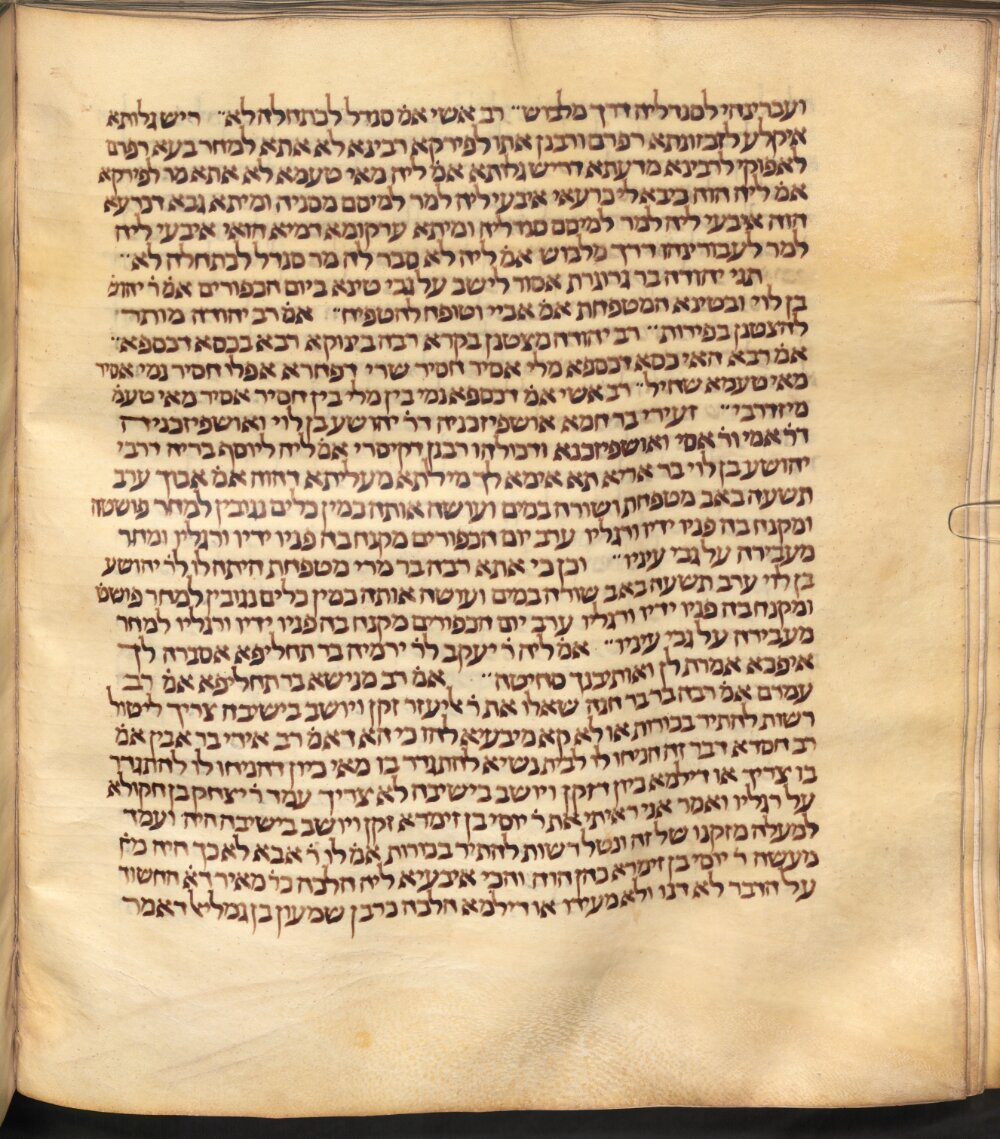 ועברינהי לסנדליה דרך מלבוש״ רב אשי אמ׳ סנדל לכתחלה לא״ ריש גלותא
איקלע להגרוניא רפרם ורבנן אתו לפירקא רבינא לא אתא למחר בעא רפרם
לאפוקי לרבינא מדעתא דריש גלותא אמ׳ ליה מאי טעמא לא אתא מר לפירקא
אמ׳ ליה הוה כיבא לי כרעאי איבעי ליה למר למיסם מסניה ומיתא גבא דכרעא
הוה איבעי ליה למר למיסם סנדליה ומיתא ערקומא דמיא הואי איבעי ליה
למר לעבורינהו דרך מלבוש אמ׳ ליה לא סבר לה מר סנדל לכתחלה לא״
תני יהודה בר גרוגרת אסור לישב על גבי טינא ביום הכפורים אמ׳ ר׳ יהוש׳
בן לוי ובטינא המטפחת אמ׳ אביי וטופח להטפיח״ אמ׳ רב יהודה מותר
להצטנן בפירות״ רב יהודה מצטנן בקרא רבה בינוקא רבא בכסא דכספא״
אמ׳ רבא האי כסא דכספא מלי אסיר חסיר שרי דפחרא אפלו חסיר נמי אסיר
מאי טעמא שחיל״ רב אשי אמ׳ דכספא נמי בין מלי בין חסיר אסיר מאי טעמ׳
מיזדרבי״ זעירי בר חמא אושפיזכניה דר׳ יהושע בן לוי ואושפיזכניה
דר׳ אמי ור׳ אסי ואושפיזכנא דכולהו רבנן דקיסרי אמ׳ ליה ליוסף בריה דרבי
יהושע בן לוי בר אריא תא אימא לך מילתא מעליתא דהוה אמ׳ אבוך ערב
תשעה באב מטפחת ושורה במים ועושה אותה כמין כלים נגובין למחר פושטה
ומקנח בה פניו ידיו ורגליו ערב יום הכפורים מקנח בה פניו ידיו ורגליו ומחר
מעבירה על גבי עיניו״ וכן כי אתא רבה בר מרי מטפחת היתה לו לר׳ יהושע
בן לוי ערב תשעה באב שורה במים ועושה אותה כמין כלים נגובין למחר פושט׳
ומקנח בה פניו ידיו ורגליו ערב יום הכפורים מקנח בה פניו ידיו ורגליו למחר
מעבירה על גבי עיניו״ אמ׳ ליה ר׳ יעקב לר׳ ירמיה בר תחליפא אסברה לך
איפכא אמרת לן ואותיבנך סחיטה״ אמ׳ רב מנישא בר תחליפא אמ׳ רב
עמרם אמ׳ רבה בר בר חנה שאלו את ר׳ אליעזר זקן ויושב בישיבה צריך ליטול
רשות להתיר בכורות או לא קא מיבעיא להו כי הא דאמ׳ רב אידי בר אבין אמ׳
רב חסדא דבר זה הניחו לו לבית נשיא להתגדר בו מאי כיון דהניחו לו להתגדר
בו צריך או דילמא כיון דזקן ויושב בישיבה לא צריך עמד ר׳ יצחק בן חקולא
על רגליו ואמר אני ראיתי את ר׳ יוסי בן זימרא זקן ויושב בישיבה היה ועמד
למעלה מזקנו של זה ונטל רשות להתיר בכורות אמ׳ לו ר׳ אבא לא כך היה מע׳
מעשה ר׳ יוסי בן זימרא כהן הוה והכי איבעיא ליה הלכה כר׳ מאיר דא׳ החשוד
על הדבר לא דנו ולא מעידו או דילמא הלכה כרבן שמעון בן גמליאל דאמר